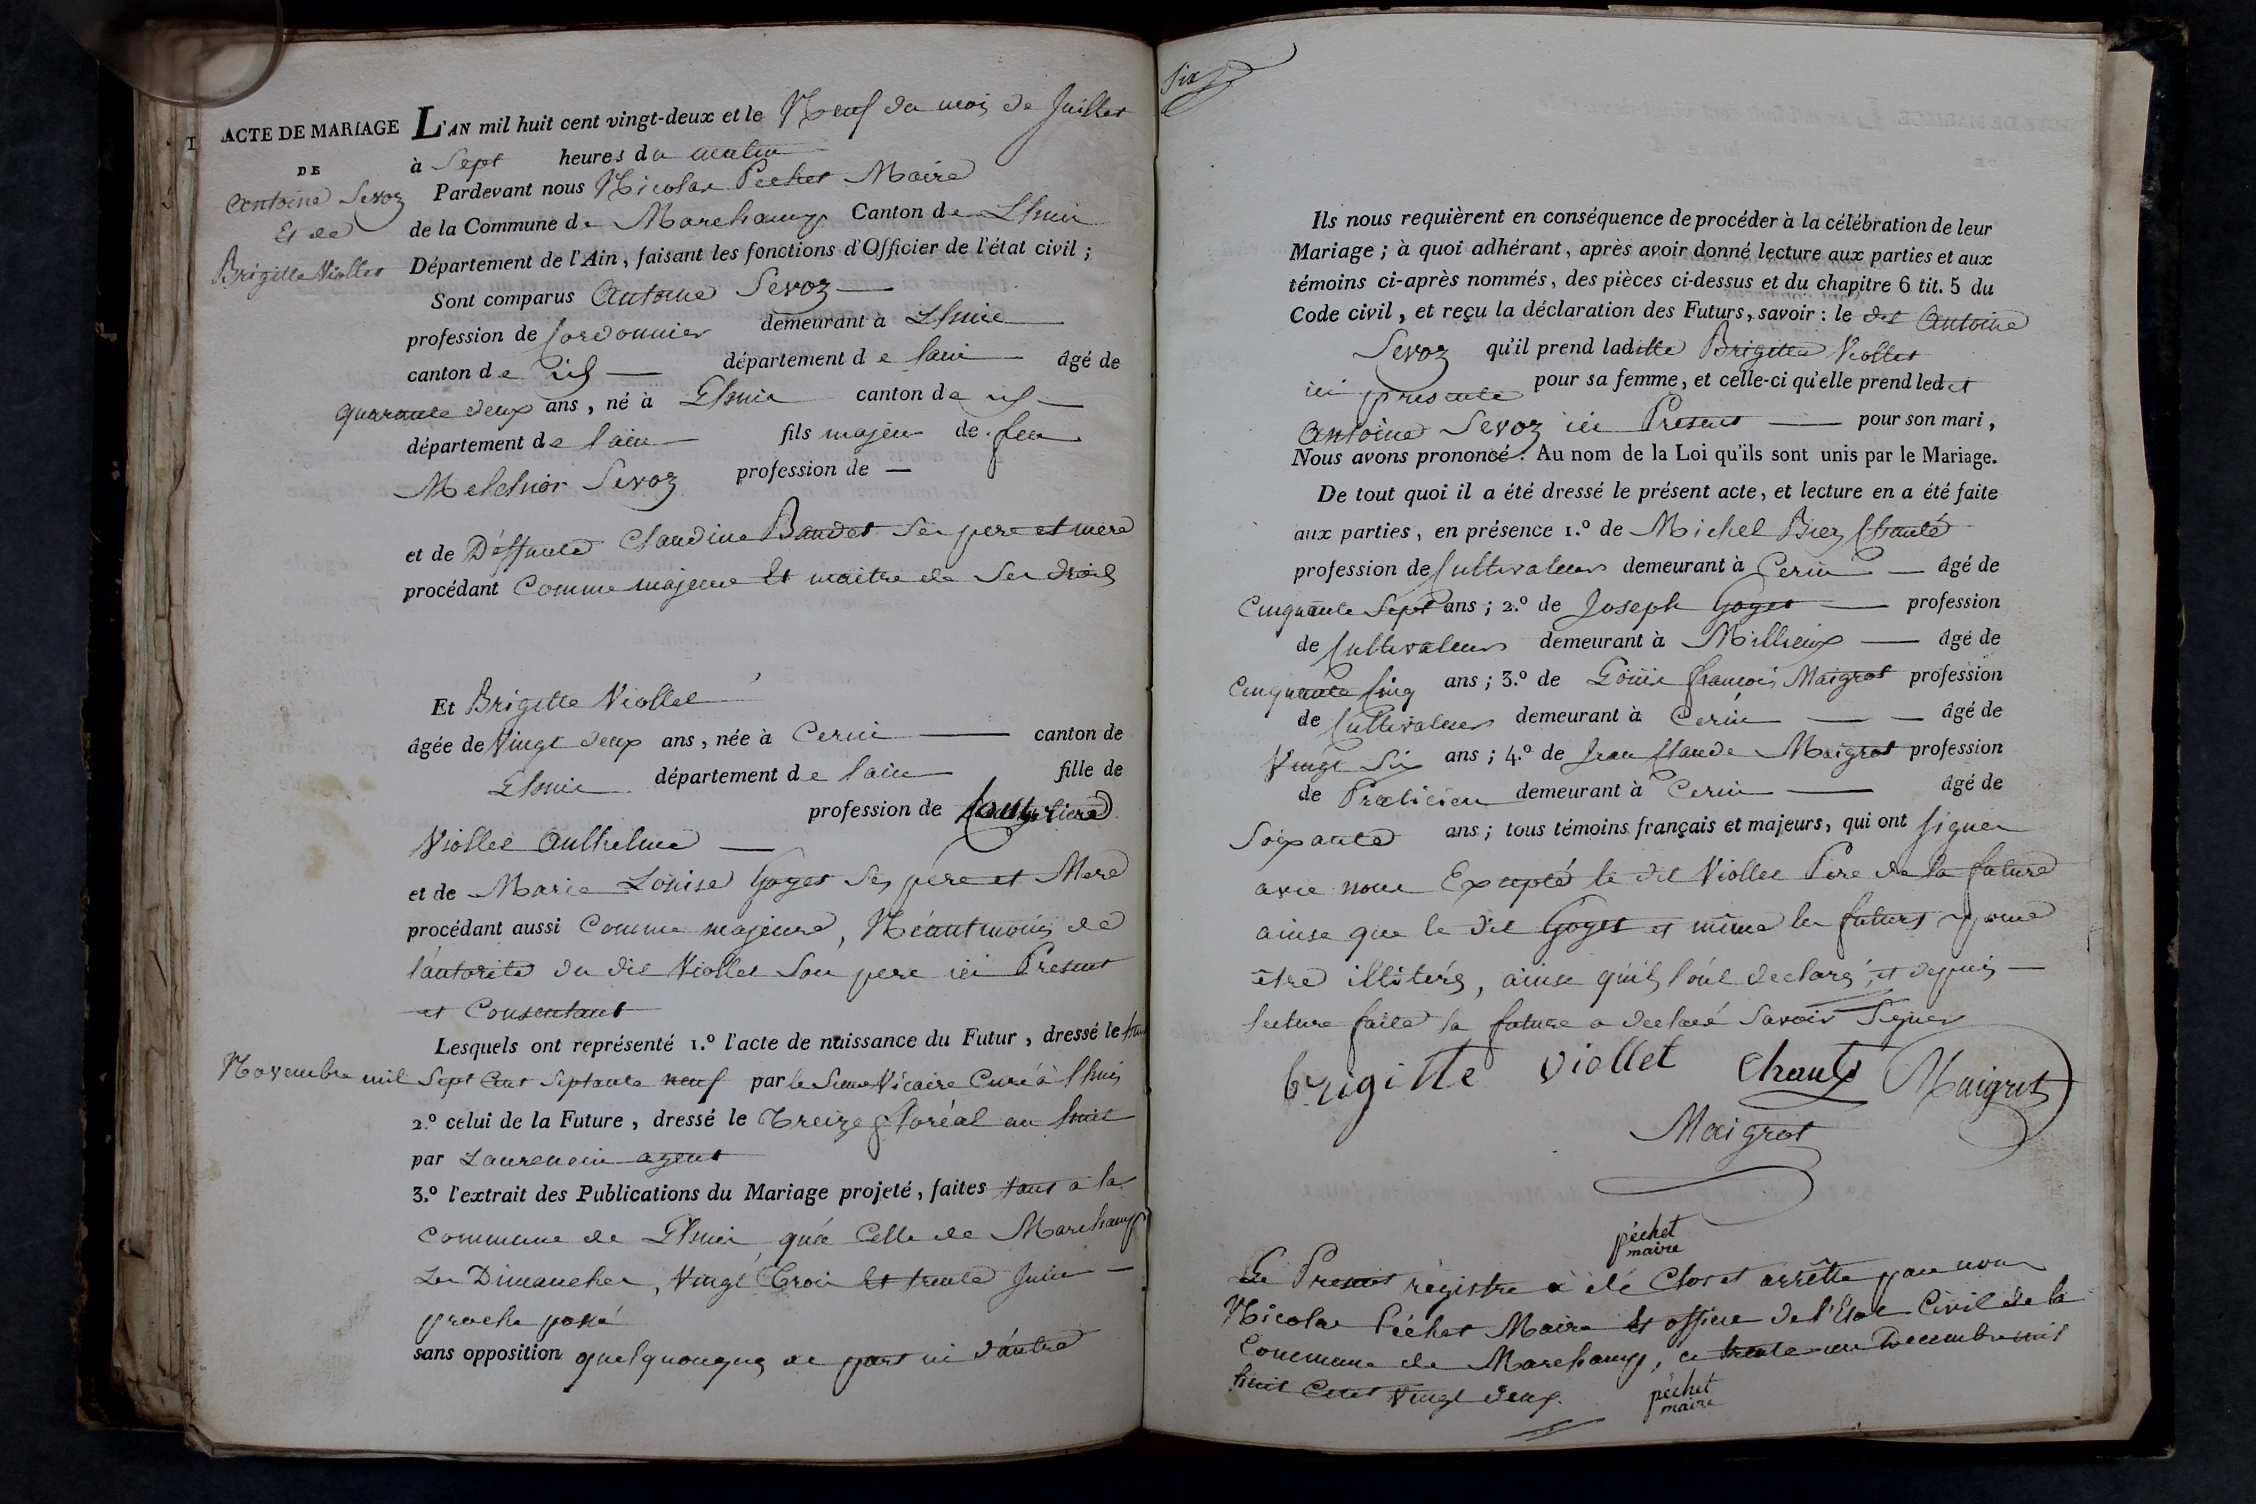 ACTE DE MARIAGE
DE
Antoine Sevoz
Et de
Brigitte Viollet
L'AN mil huit cent vingt-deux et le Neuf du mois de Juillet
à Sept heures du matin
Pardevant nous Nicolas Pechet Maire
de la Commune de Marchamp Canton de Lhuis
Département de l'Ain, faisant les fonctions d'Officier de l'état civil ;
Sont comparus Antoine Sevoz
profession de Cordonnier demeurant à Lhuis
canton de id département de l'ain âgé de
quarante deux ans, né à Lhuis canton de id
département de l'ain fils majeur de feu
Melchior Sevoz profession de —
et de Déffunte Claudine Baudet Ses pere et mere
procédant Comme majeur Et maitre de Ses droits
Et Brigitte Viollet
âgée de Vingt deux ans, née à Cerin canton de
Lhuis département de l'ain fille de
profession de
Viollet Anthelme
et de Marie Louise Goyet Ses père et Mere
procédant aussi Comme majeure, Néantmoins de
l'autorité du dit Viollet Son pere ici Present
et Consentant
Lesquels ont représenté 1.º l'acte de naissance du Futur, dressé le
Novembre mil Sept Cent Septante neuf par le Vicaire Curé à Lhuis
2.º celui de la Future, dressé le Treize floréal an huit
par Laurencin agent
3.º l'extrait des Publications du Mariage projeté, faites tant a la
Commune de Lhuis, qu'a Celle de Marchamp
Les Dimanches, Vingt Trois Et trente Juin
proche passé
sans opposition quelquonques de part ni d'autre
Six
Ils nous requièrent en conséquence de procéder à la célébration de leur
Mariage ; à quoi adhérant, après avoir donné lecture aux parties et aux
témoins ci-après nommés, des pièces ci-dessus et du chapitre 6 tit. 5 du
Code civil, et reçu la déclaration des Futurs, savoir : le dit Antoine
Sevoz qu'il prend ladite Brigitte Viollet
ici presente pour sa femme, et celle-ci qu'elle prend ledit
Antoine Sevoz ici Present pour son mari,
Nous avons prononcé : Au nom de la Loi qu'ils sont unis par le Mariage.
De tout quoi il a été dressé le présent acte, et lecture en a été faite
aux parties, en présence 1.º de Michel Biez Chanté
profession de Cultivateur demeurant à Cerin âgé de
Cinquante Sept ans ; 2.º de Joseph Goyet profession
de Cultivateur demeurant à Millieux âgé de
Cinquante Cinq ans ; 3.º de Louis françois Maigrot profession
de Cultivateur demeurant à Cerin âgé de
Vingt Six ans ; 4.º de Jean Claude Maigrot profession
de Praticien demeurant à Cerin âgé de
Soixante ans ; tous témoins français et majeurs, qui ont Signer
avec nous Excepté le dit Viollet Pere de la future
ainse que le dit Goyet et même les futurs pour
être illitérés, ainse qu'ils l'ont declaré, et depuis
lecture faite la future a declaré Savoir Signer
brigitte viollet chanté Maigrot
Maigrot
péchet
maire
Le Present régistre a été Clos et arrêtté par nous
Nicolas Péchet Maire Et officier de l'Etat Civil de la
Commune de Marchamp, ce trente un Decembre mil
huit Cent Vingt deux.
péchet
maire